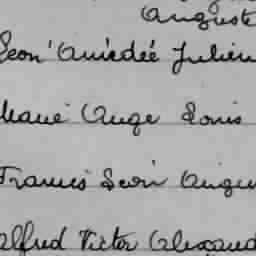 Auguste
Léon Amédée Julien
Ange Louis
Francis Léon Augus
Alfred Victor Alexand